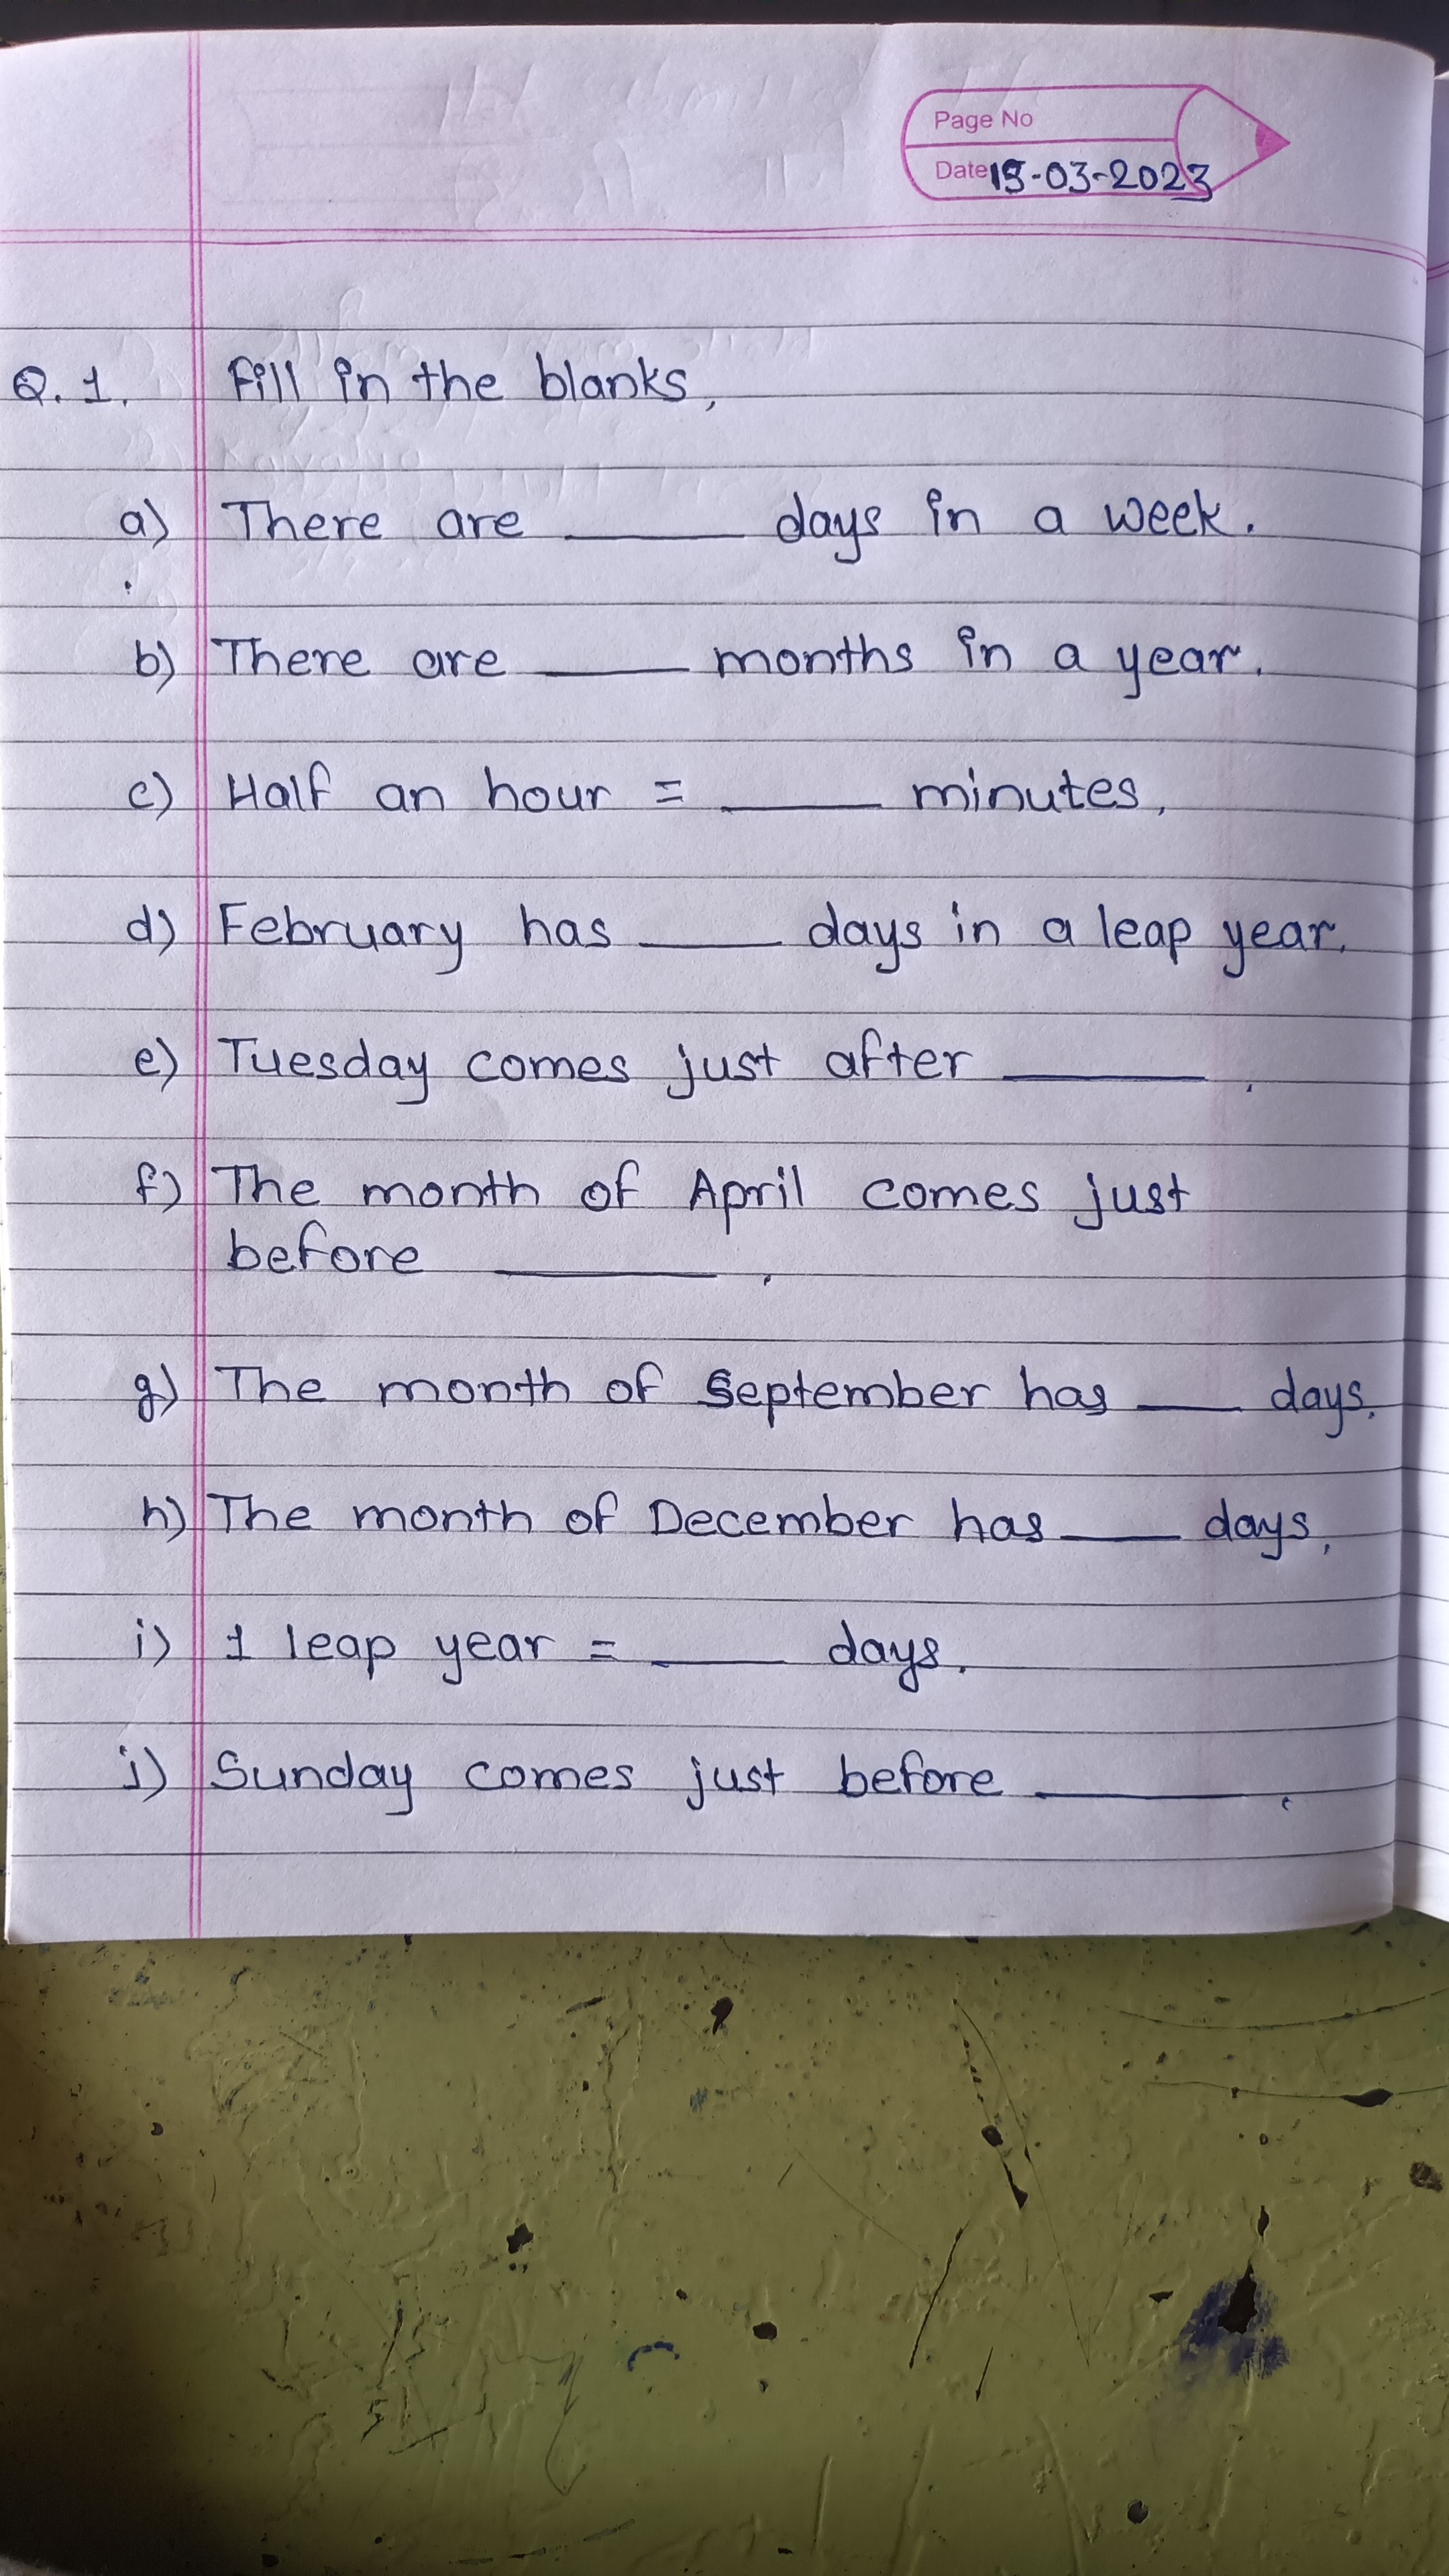 Page No
Date 15-03-2023
Q. 1. Fill in the blanks,
a) There are _____ days in a week.
b) There are _____ months in a year.
c) Half an hour = _____ minutes,
d) February has _____ days in a leap year.
e) Tuesday comes just after _____ .
f) The month of April comes just
before _____ .
g) The month of September has ____ days.
h) The month of December has ____ days,
i) 1 leap year = _____ days.
j) Sunday comes just before _____ .